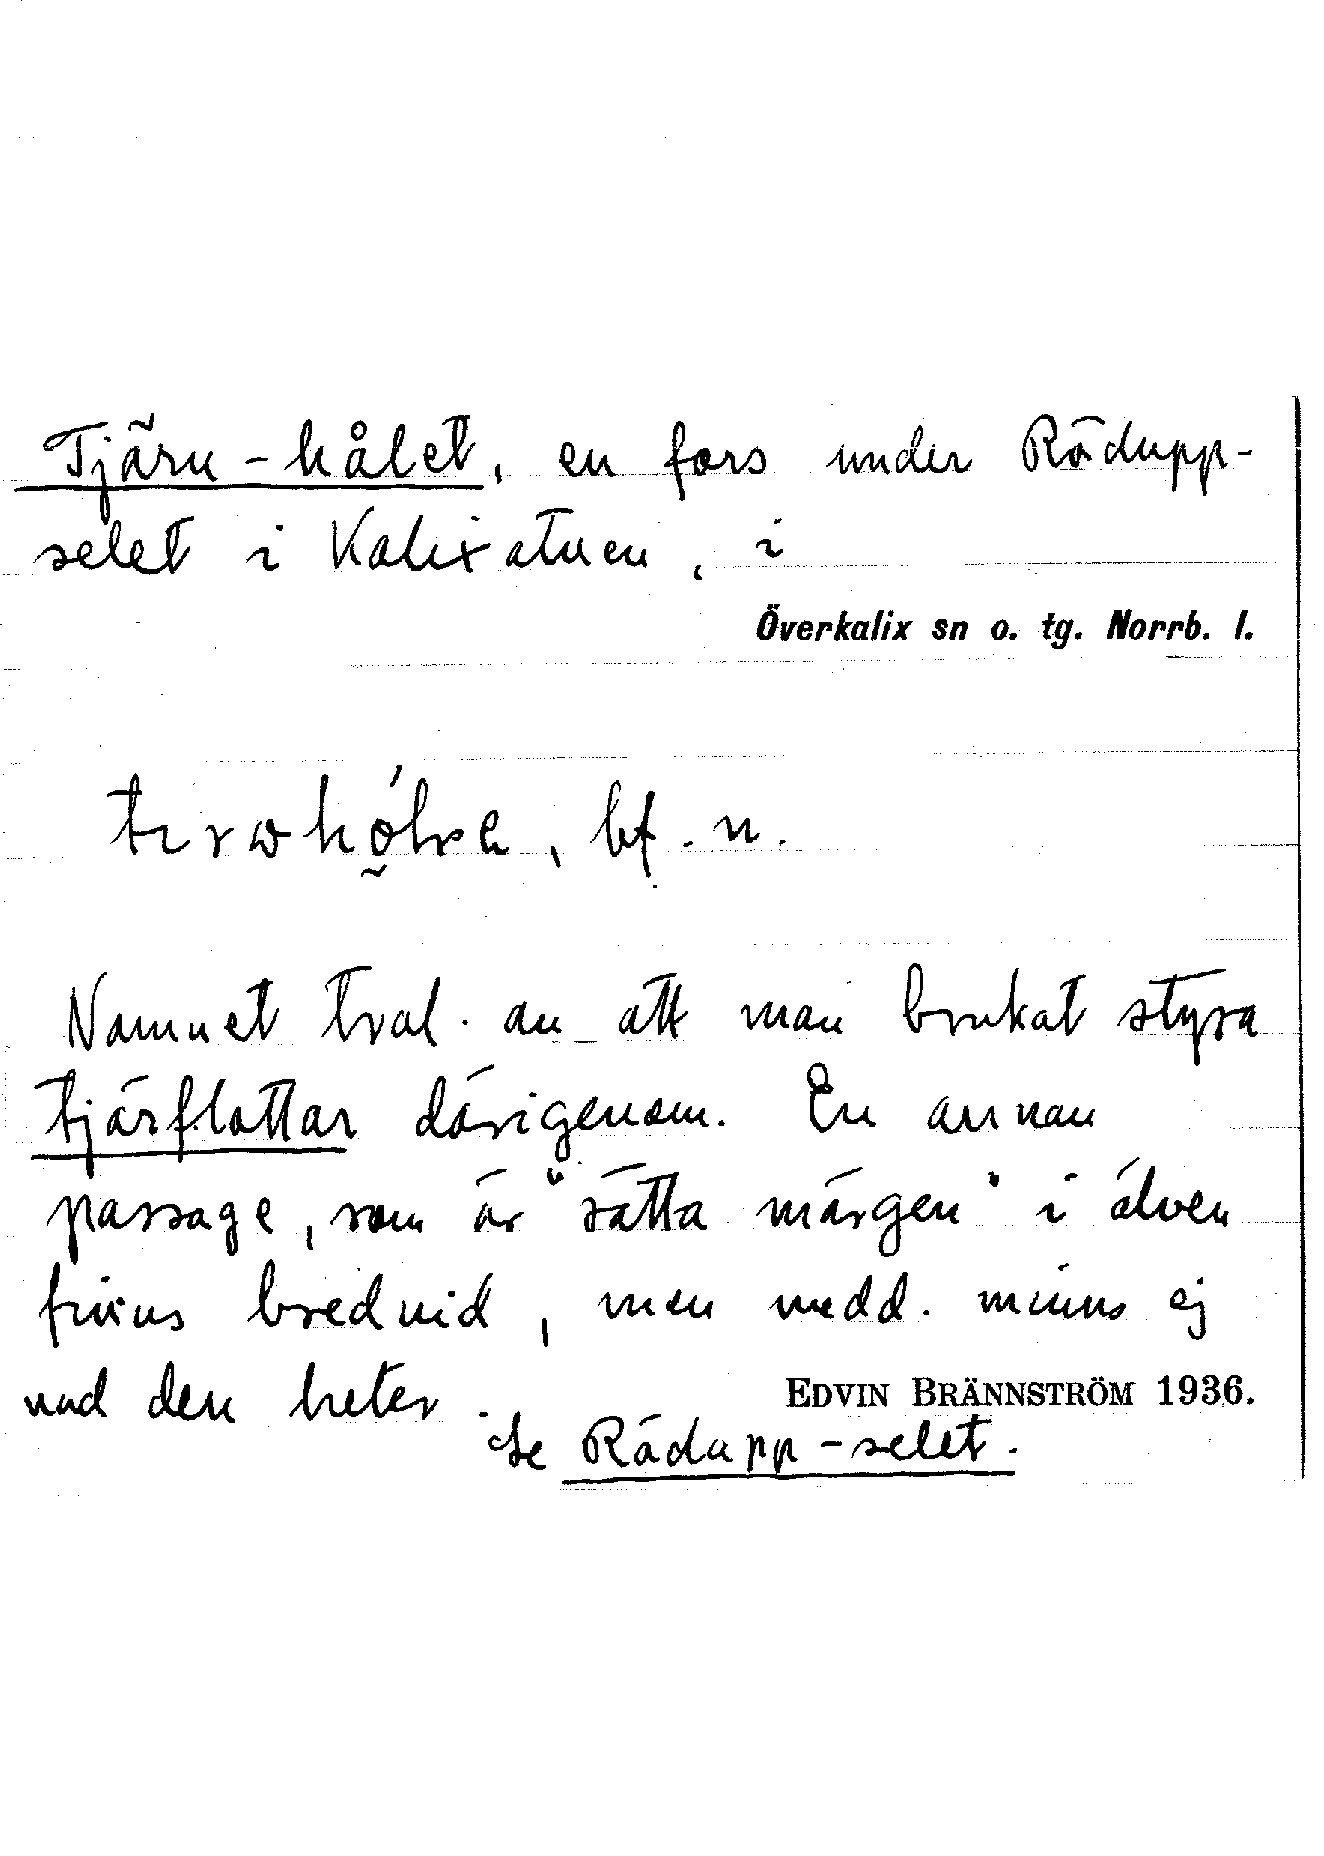 Tjäru-hålet, en fors under Rädupp-
selet i Kalixälven, i
Överkalix sn o. tg. Norrb. l.
bf. n.
Namnet trol. av att man brukat styra
tjärflottar därigenom. En annan
passage, som är "rätta märgen" i älven
finns bredvid, men medd. minns ej
vad den heter.
EDVIN BRÄNNSTRÖM 1936.
Se Rädupp-selet.